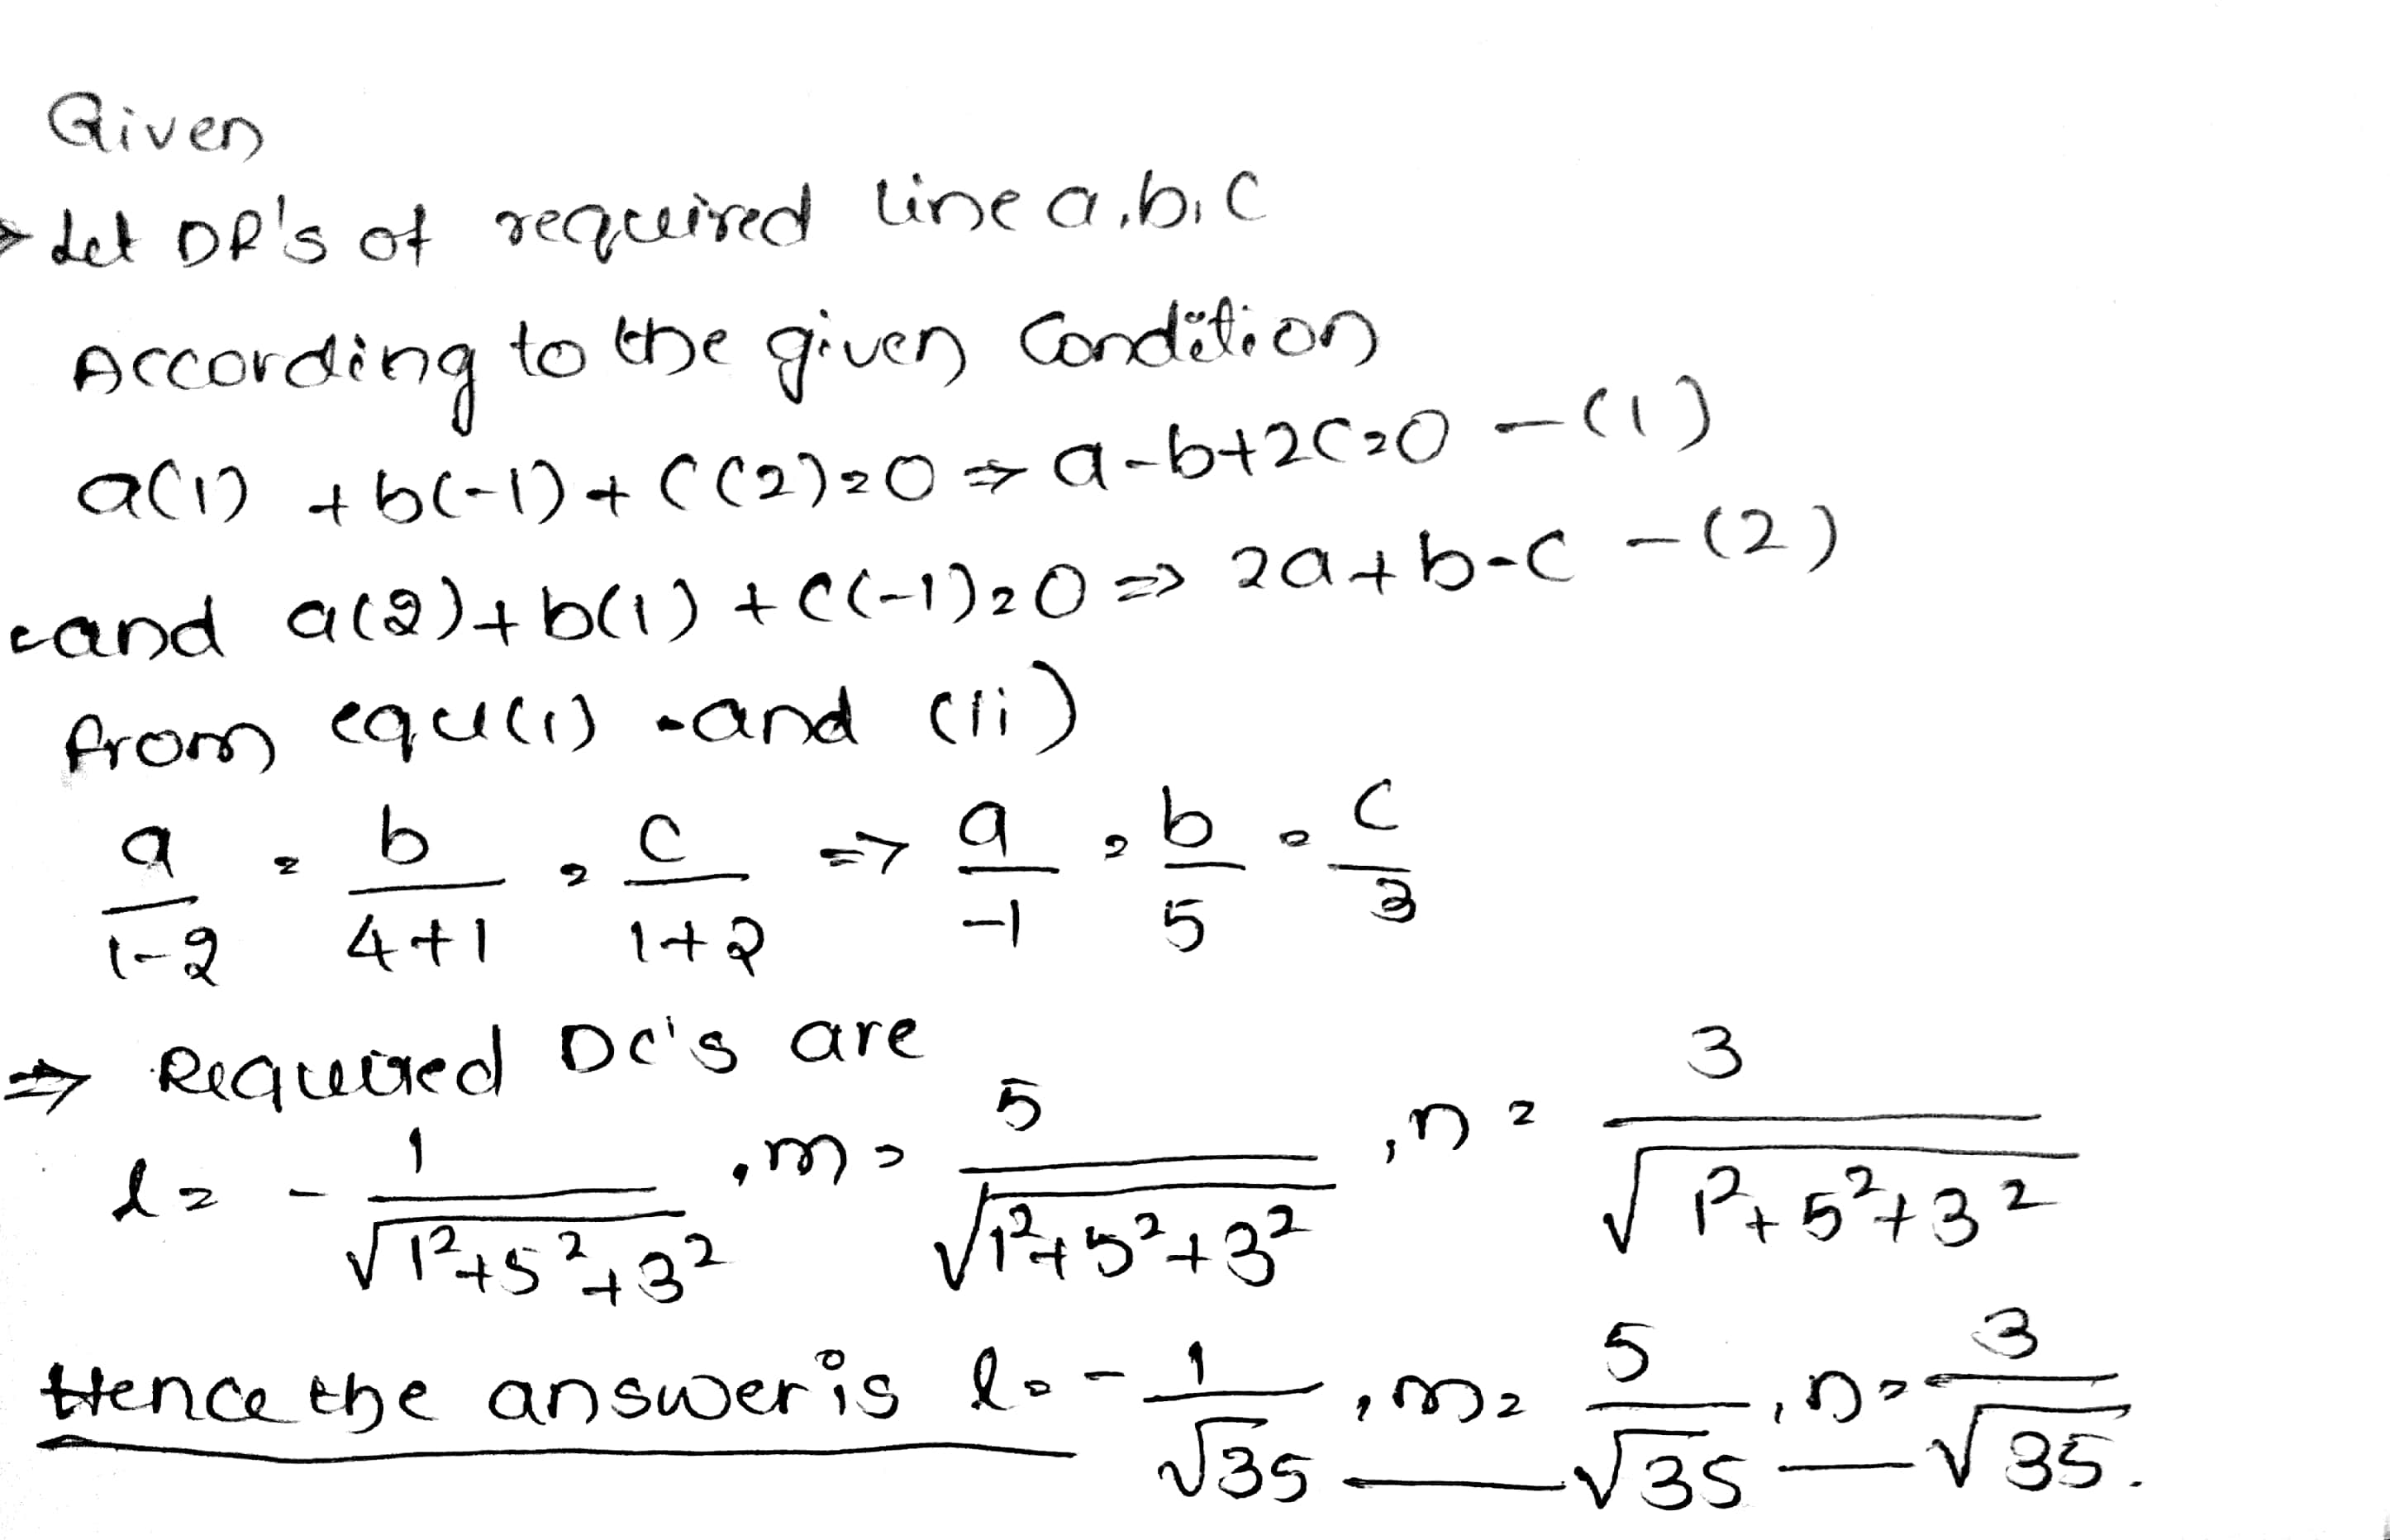 Given
Let DR's of required line a,b,c
According to the given Condition
a(1) + b(-1) + c(2) = 0 ⇒ a-b+2c=0 - (1)
and a(2)+b(1)+c(-1)=0 ⇒ 2a+b-c - (2)
from equ(i) and (ii)
a/(1-2) = b/(4+1) = c/(1+2) ⇒ a/-1 = b/5 = c/3
⇒ Required DC's are
l = - 1/√(1²+5²+3²) , m = 5/√(1²+5²+3²) , n = 3/√(1²+5²+3²)
Hence the answer is l = - 1/√35 , m = 5/√35 , n = 3/√35.